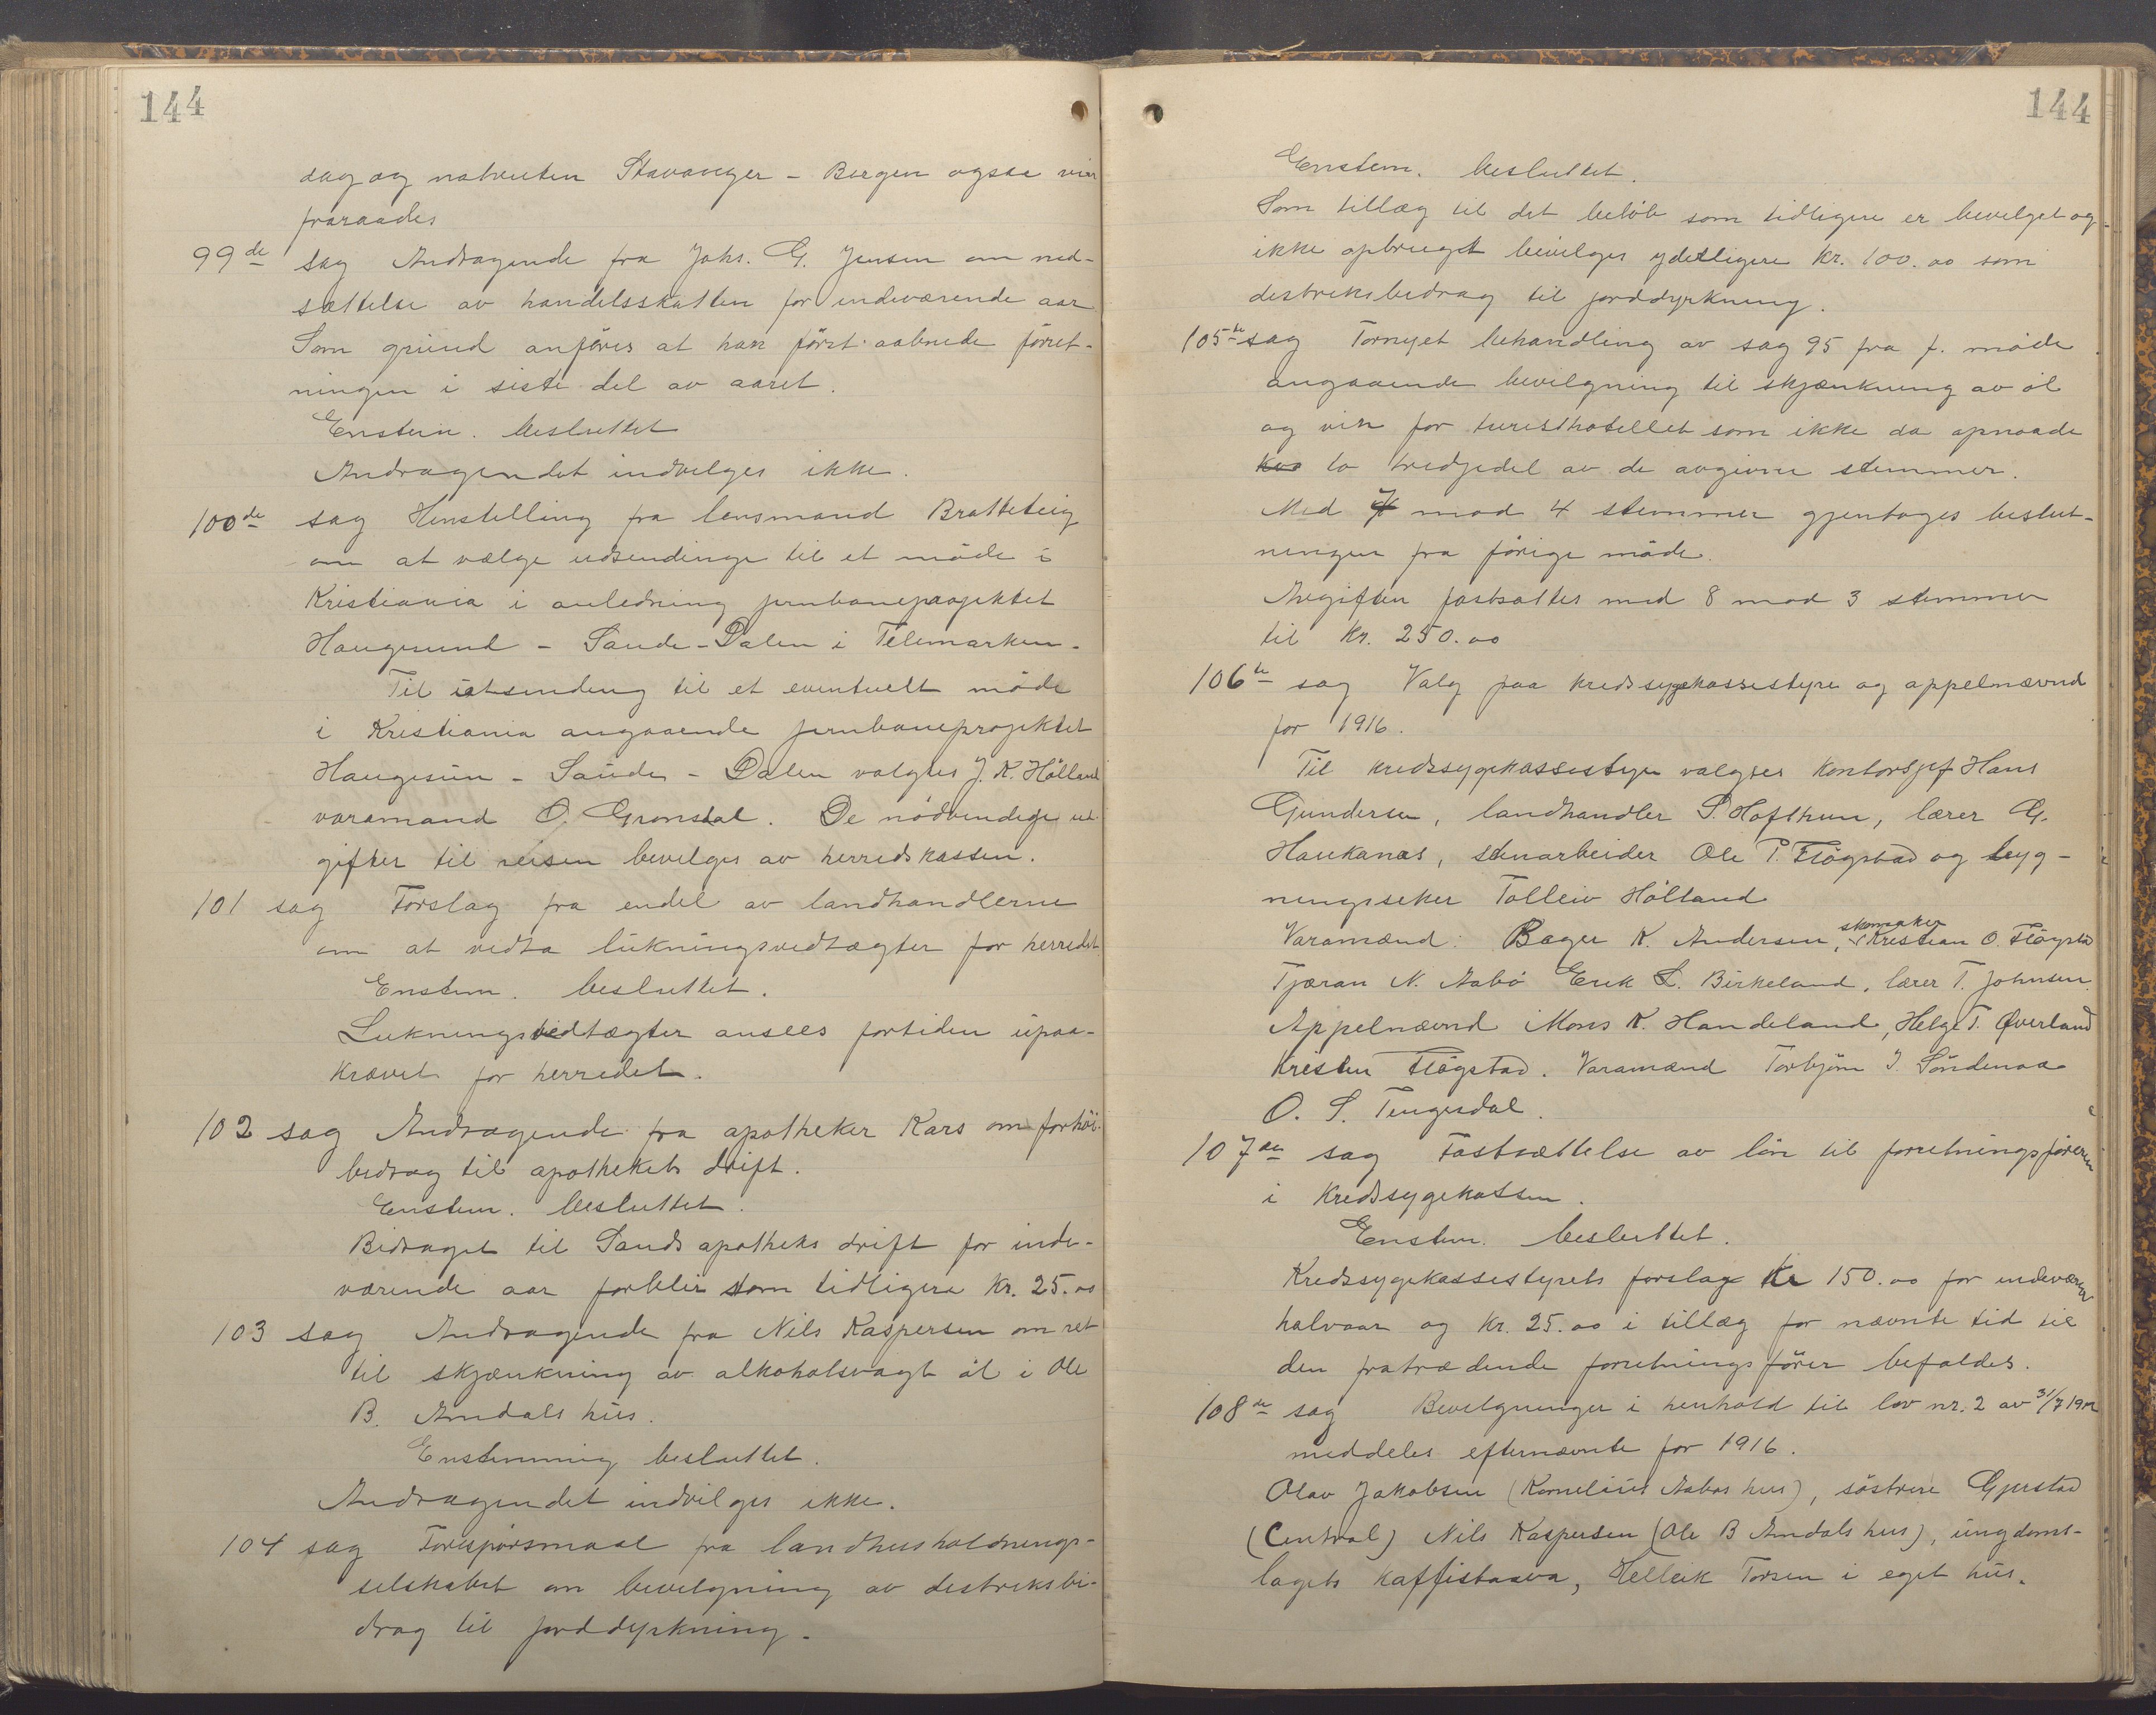 144
dag og natruten Stavanger - Bergen ogsaa vir
fraraades
99de sag Andragende fra Johs. G. Jensen om ned-
sættelse av handelsskatten for indeværende aar
Som grund anføres at han først aabnede forret-
ningen i siste del av aaret.
Enstem. besluttet
Andragendet indvilges ikke.
100de sag Henstilling fra lensmand Bratteteig
om at vælge udsendinge til et møde i
Kristiania i anledning jernbaneprojektet
Haugesund - Saude - Dalen i Telemarken.
Til utsending til et eventuelt møde
i Kristiania angaaende jernbaneprojektet
Haugesun - Saude - Dalen valgtes J. K. Hølland
varamand O. Grønstal. De nødvendige ut-
gifter til reisen bevelges av herredskassen.
101 sag Forslag fra endel av landhandlerne
om at vedta lukningsvedtægter for herredet.
Enstem. besluttet.
Lukningsvedtægter ansees fortiden upaa-
krævet for herredet.
102 sag Andragende fra apotheker Kars om forhøi.
bedrag til apothekets drift.
Enstem. besluttet.
Bidraget til Sands apotheks drift for inde-
værende aar forblir som tidligere Kr. 25.00
103 sag Andragende fra Nils Kaspersen om ret
til skjænkning av alkoholsvagt øl i Ole
B. Amdals hus.
Enstemmig besluttet.
Andragendet indvilges ikke.
104 sag Forespørsmaal fra landhusholdnings-
selskabet om bevilgning av destriksbi-
drag til jorddyrkning.
144
Enstem. besluttet.
Som tillæg til det beløb som tidligere er bevelget og
ikke opbrugt bevilges yderligere Kr. 100.00 som
destriksbedrag til jorddyrkning.
105te sag Fornyet behandling av sag 95 fra f. møde
angaaende bevilgning til skjænkning av øl
og vin for turisthotellet som ikke da opnaade
to tredjedel av de avgivne stemmer.
Med 7 mod 4 stemmer gjentages beslut-
ningen fra forige møde.
Avgiften fastsattes med 8 mod 3 stemmer
til Kr. 250.00
106te sag Valg paa kredssygekassestyre og appelnævnd
for 1916.
Til kredssygekassestyre valgtes Kontorsjef Hans
Gundersen, landhandler S. Hofthun, lærer G.
Haukanæs, stenarbeider Ole T. Fløgstad og byg-
ningseker Tolleiv Hølland
Varamænd: Bager K. Andersen, skomaker Kristian O. Fløgsta
Tjæran N. Aabø Erik L. Birkeland, lærer T. Johnsen.
Appelnævnd Mons K. Handeland, Helge T. Øverland
Kristen Fløgstad. Varamænd Torbjørn J. Søndenaa
O. S. Tengesdal.
107de sag Fastsættelse av løn til forretningsføreren
i Kredssygekassen.
Enstem. besluttet.
Kredssygekassestyrets forslag Kr 150.00 for indeværen
halvaar og kr. 25.00 i tillæg for nævnte tid til
den fratrædende forretningsfører befaldes.
108de sag Bevelgninger i henhold til lov nr. 2 av 31/7 19
meddeles efternævnte for 1916.
Olav Jakobsen (Kornelius Aabøs hus), søstrene Gjerstad
(Central) Nils Kaspersen (Ole B Amdals hus), ungdoms-
lagets kaffistaava, Helleik Torsen i eget hus.